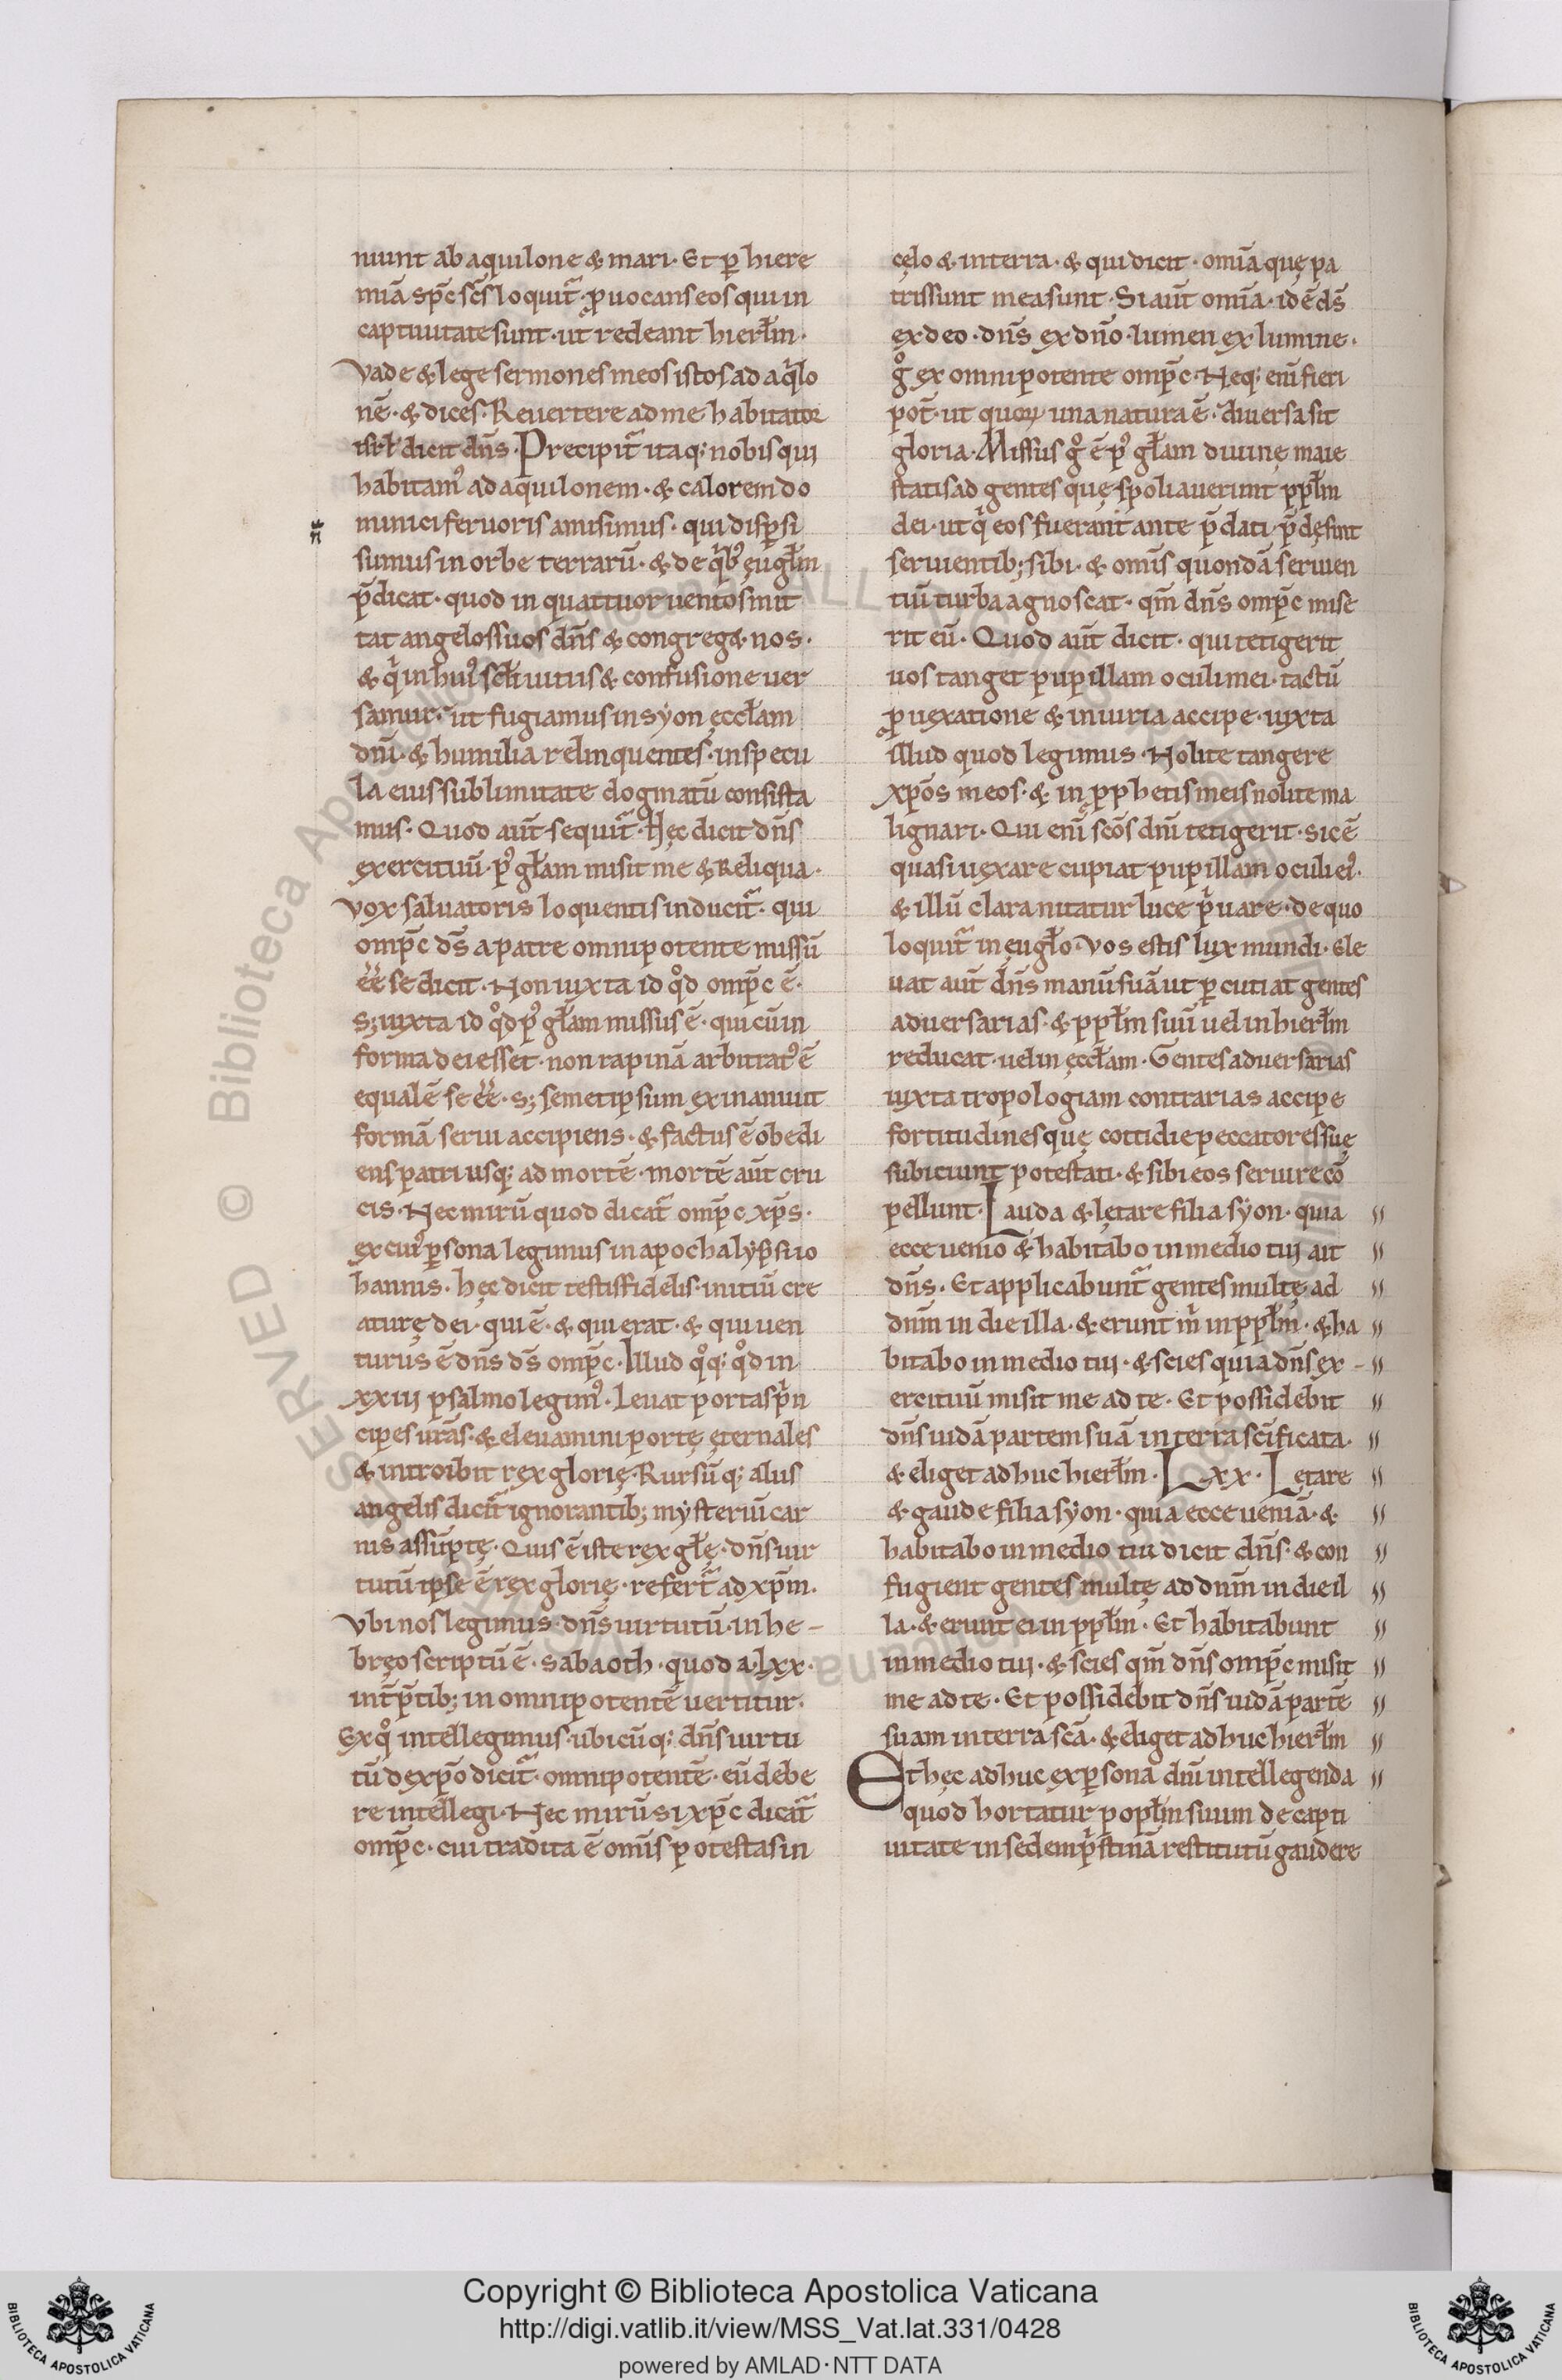 niunt ab aquilone & mari. Et p̱ hiere
miā sp̄c sc̄s loquit̄. ꝓuocans eos qui in
captiuitate sunt. ut redeant hierl̄m.
Vade & lege sermones meos istos ad aqͥlo
nē. & dices. Reuertere ad me habitator
isrl̄ dicit dn̄s. Precipit̄ itaq; nobis qui
habitam᾽ ad aquilonem. & calorem do
minici feruoris amisimus. qui disꝑsi
sumus in orbe terrarū. & de qͥb᾽ eugl̄m
p̄dicat. quod in quattuor uentos mit
tat angelos suos dn̄s & congreg& nos.
& qͥ in hui᾽ scl̄i uitiis & confusione uer
samur. ut fugiamus in syon ęccl̄am
dn̄i. & humilia relinquentes. in specu
la eius sublimitate dogmatū consista
mus. Quod aūt sequit̄. Hęc dicit dn̄s
exercituū. p᾽ gl̄am misit me & Reliqua.
Vox saluatoris loquentis inducit̄. qui
omp̄c ds̄ a patre omnipotente missū
ēē se dicit. Non iuxta id qͦd omp̄c ē.
s; iuxta id qͦd p᾽ gl̄am missus ē. qui cū in
forma dei esset. non rapinā arbitrat᾽ ē
equalē se ēē. s; semetipsum exinaniuit
formā serui accipiens. & factus ē obedi
ens patri usq; ad mortē. mortē aūt cru
cis. Nec mirū quod dicat̄ omp̄c xp̄s.
ex cui᾽ ꝑsona legimus in apochalyp̄si io
hannis. hęc dicit testis fidelis. initiū cre
aturę dei. qui ē. & qui erat. & qui uen
turus ē dn̄s ds̄ omp̄c. Illud qͦq; qͦd in
xxiii psalmo legim᾽. Leuat portas pͥn
cipes ur̄as. & eleuamini portę ęternales
& introibit rex glorię. Rursūq; alus
angelis dicit̄ ignorantib; mysteriū car
nis assūptę. Quis ē iste rex gl̄ę. dn̄s uir
tutū ipse ē rex glorię. refert̄ ad xp̄m.
Vbi nos legimus. dn̄s uirtutū. in he-
bręo scriptū ē. sabaoth. quod a. lxx.
int̄p̄tib; in omnipotentē uertitur.
Ex qͦ intellegimus. ubicūq; dn̄s uirtu
tū de xp̄o dicit̄. omnipotentē. eū debe
re intellegi. Nec mirū si xp̄c dicat̄
omp̄c. cui tradita ē omīs potestas in
cęlo & in terra. & qui dicit. omīa quę pa
tris sunt mea sunt. Si aūt omīa. id ē ds̄
ex deo. dn̄s ex dn̄o. lumen ex lumine.
gͦ ex omnipotente omp̄c. Neq; enī fieri
pot̄. ut quoꝝ una natura ē. diuersa sit
gloria. Missus gͦ ē p᾽ gl̄am diuinę maie
statis ad gentes quę spoliauerunt ppl̄m
dei. ut qͥ eos fuerant ante p̄dati. p̄dę sint
seruientib; sibi. & omīs quondā seruien
tiū turba agnoscat. qm̄ dn̄s omp̄c mise
rit eū. Quod aūt dicit. qui tetigerit
uos tanget pupillam oculi mei. tactū
ꝓ uexatione & iniuria accipe. iuxta
illud quod legimus. Nolite tangere
xp̄os meos. & in ꝓphetis meis nolite ma
lignari. Qui enī sc̄os dn̄i tetigerit. sic ē
quasi uexare cupiat pupillam oculi ei᾽.
& illū clara nitatur luce pͥuare. de quo
loquit̄ in eugl̄o. Vos estis lux mundi. Ele
uat aūt dn̄s manū suā ut ꝑcutiat gentes
aduersarias. & ppl̄m suū uel in hierl̄m
reducat. uel in ęccl̄am. Gentes aduersarias
iuxta tropologiam contrarias accipe
fortitudines quę cottidie peccatores suę
subiciunt potestati. & sibi eos seruire cō
pellunt. Lauda & lętare filia syon. quia
ecce uenio & habitabo in medio tui ait
dn̄s. Et applicabunt̄ gentes multę ad
dnm̄ in die illa. & erunt mͥ in ppl̄m. & ha
bitabo in medio tui. & scies quia dn̄s ex-
ercituū misit me ad te. Et possidebit
dn̄s iudā partem suā in terra sc̄ificata.
& eliget adhuc hierl̄m. Lxx. Lętare
& gaude filia syon. quia ecce ueniā. &
habitabo in medio tui dicit dn̄s. & con
fugient gentes multę ad dnm̄ in die il
la. & erunt ei in ppl̄m. Et habitabunt
in medio tui. & scies qm̄ dn̄s omp̄c misit
me ad te. Et possidebit dn̄s iudā partē
suam in terra sc̄a. & eliget adhuc hierl̄m
Et hęc adhuc ex ꝑsona dn̄i intellegenda
quod hortatur popl̄m suum de capti
uitate in sedem pͥstinā restitutū gaudere
Copyright © Biblioteca Apostolica Vaticana
http://digi.vatlib.it/view/MSS_Vat.lat.331/0428
powered by AMLAD · NTT DATA
BIBLIOTECA APOSTOLICA VATICANA
BIBLIOTECA APOSTOLICA VATICANA